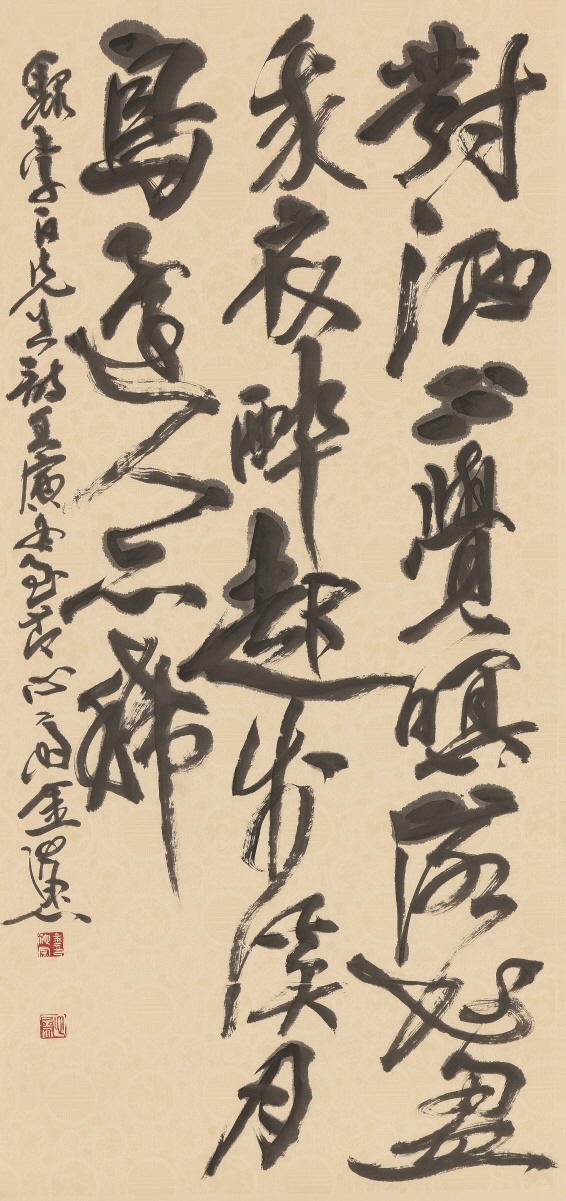 對酒不覺暝落花盈
我衣醉起步溪月
鳥還人亦稀
録李白先生詩